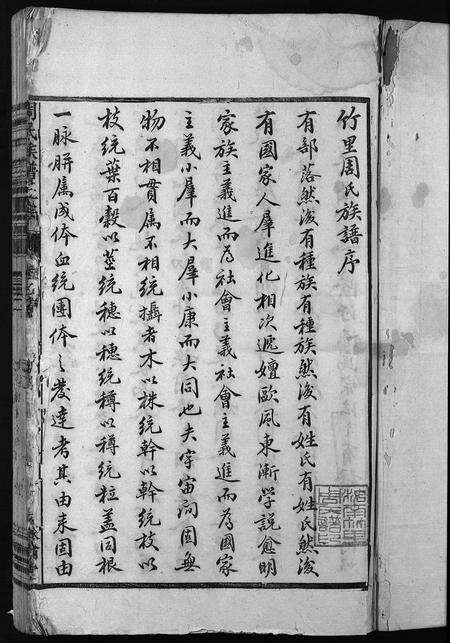 竹里周氏族譜序
有部落然後有種族有種族然後有姓氏有姓氏然後
有國家人羣進化相次遞嬗歐風東漸學說愈明
家族主義進而為社會主義社會主義進而為國家
主義小羣而大羣小康而大同也夫宇宙間固無
物不相貫屬不相統攝者木以株統幹以幹統枝以
枝統葉百穀以莖統穗以穗統稃以稃統粒蓋同根
一脉胼屬成体血統團体之發達者其由來固由
周氏族譜